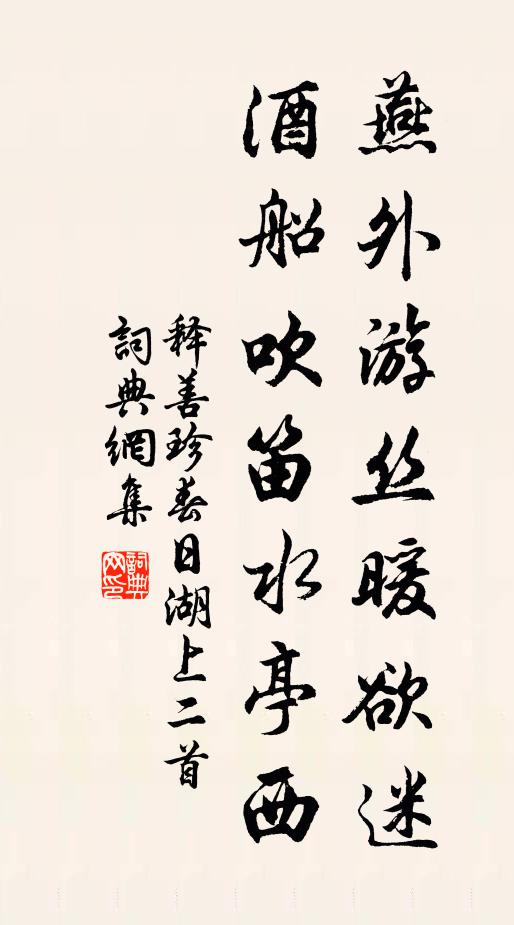 燕外游丝暖欲迷
酒船吹笛水亭西
释善珍春日湖上二首
詞典網集
詞典网印